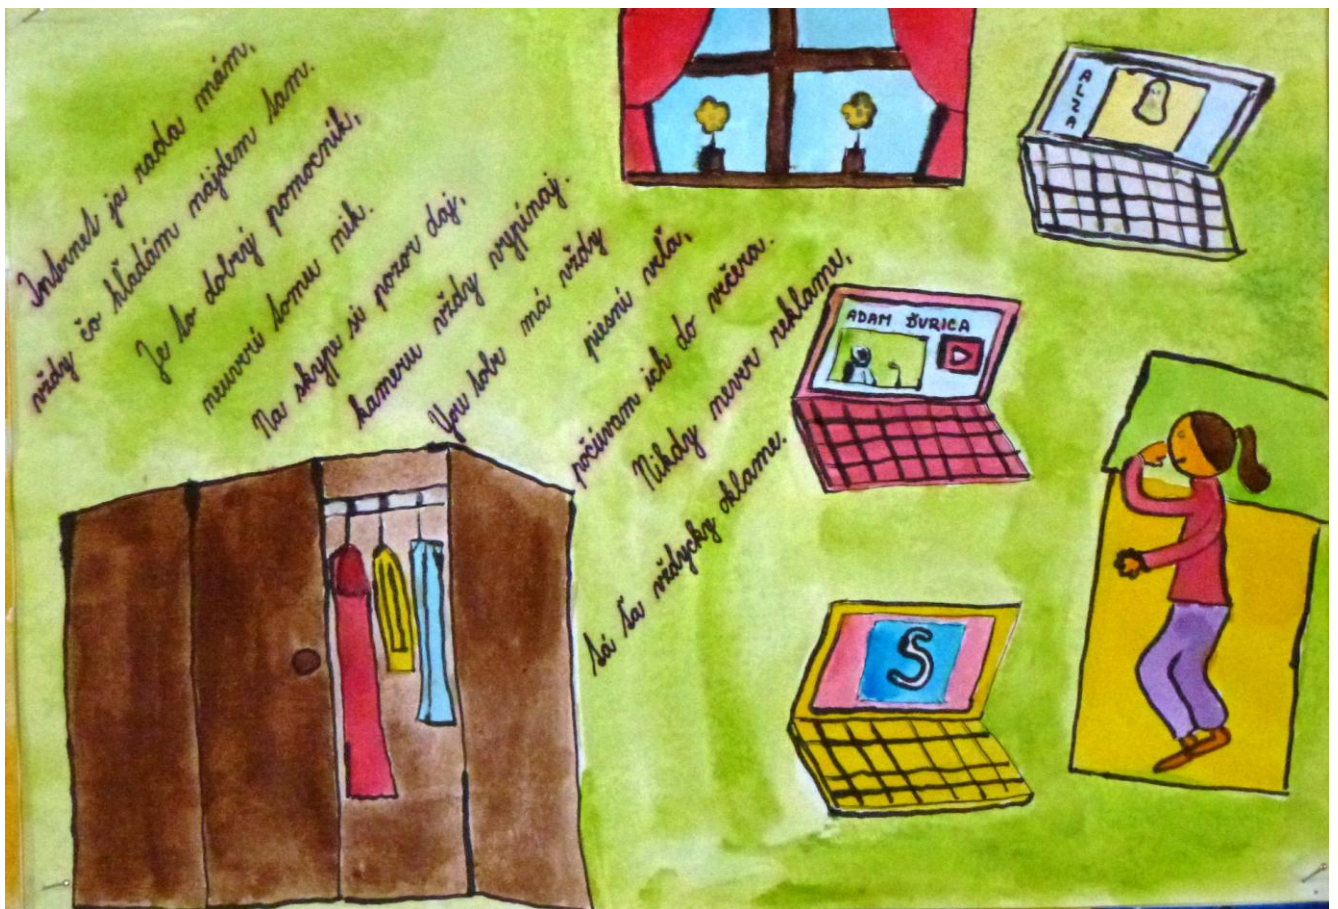 Internet ja rada mám,
vždy čo hľadám nájdem tam.
Je to dobrý pomocník,
neuverí tomu nik.
Na skype si pozor daj,
kameru vždy vypínaj.
You tobe má vždy
piesní veľa,
počúvam ich do večera.
Nikdy never reklame,
tá ťa vždycky oklame.
ALZA
ADAM ĎURICA
S